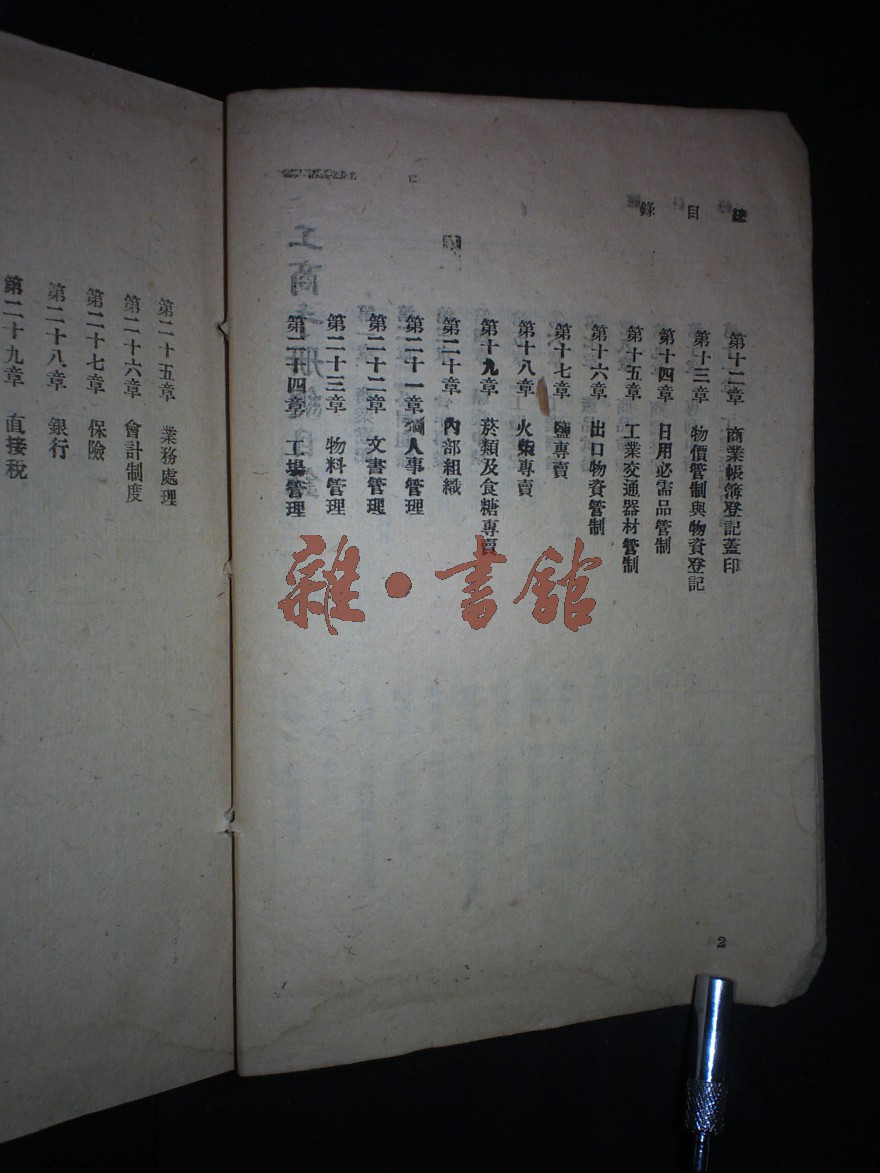 目錄
第十二章 商業帳簿登記蓋印
第十三章 物價管制與物資登記
第十四章 日用必需品管制
第十五章 工業交通器材管制
第十六章 出口物資管制
第十七章 鹽專賣
第十八章 火柴專賣
第十九章 菸類及食糖專賣
第二十章 內部組織
第二十一章 人事管理
第二十二章 文書管理
第二十三章 物料管理
第二十四章 工場管理
2
第二十五章 業務處理
第二十六章 會計制度
第二十七章 保險
第二十八章 銀行
第二十九章 直接稅
雜·書館